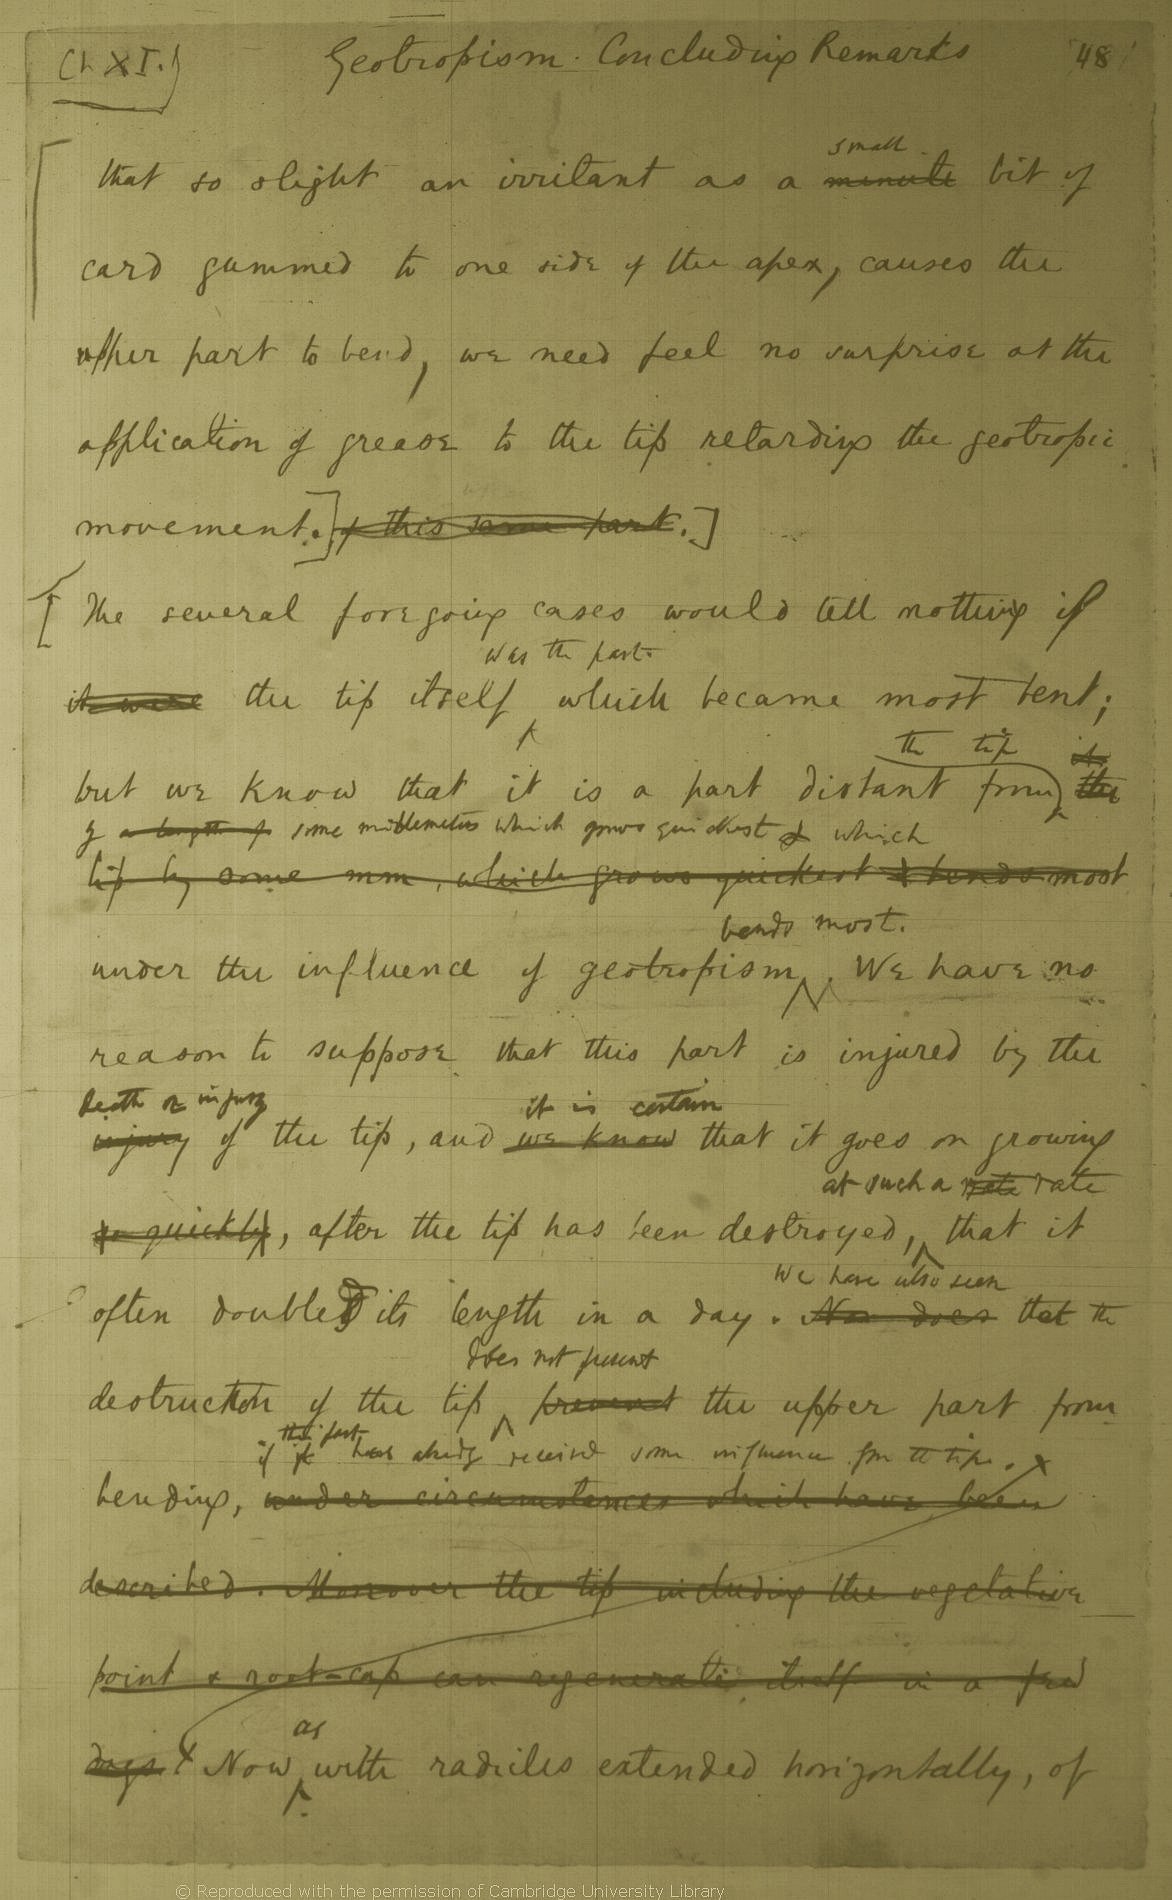 Ch XI.) Geotropism. Concluding Remarks 48
small
that so slight an irritant as a minute bit of
card gummed to one side of the apex, causes the
upper part to bend, we need feel no surprise at the
application of grease to the tip retarding the geotropic
movement.] of this same part.]
[The several foregoing cases would tell nothing if
was the part
it were the tip itself which became most bent;
the tip it
but we know that it is a part distant from the
by a length of some millemetres which grows quickest & which
tip by some mm, which grows quickest & bends most
bends most.
under the influence of geotropism. We have no
reason to suppose that this part is injured by the
death or injury it is certain
injury of the tip, and we know that it goes on growing
at such a rate rate
so quickly, after the tip has been destroyed, that it
we have also seen
often doubled its length in a day. Nor does that the
does not prevent
destruction of the tip prevent the upper part from
this part
if it has already received some influence from the tip. x
bending, under circumstances which have been
described. Moreover the tip including the vegetative
point & root-cap can regenerate itself in a few
as
days x Now with radicles extended horizontally, of
© Reproduced with the permission of Cambridge University Library